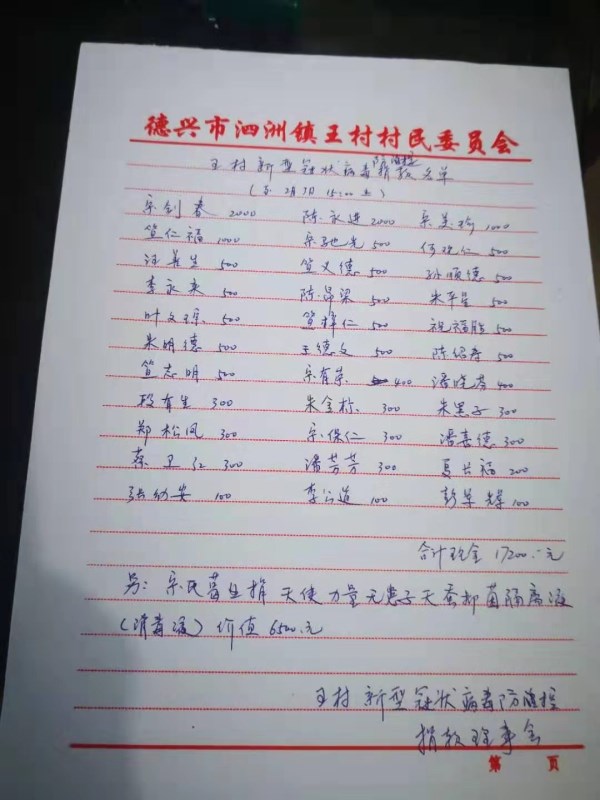 德兴市泗洲镇王村村民委员会
王村新型冠状病毒防控捐款名单
2月7日 15:00
宗剑春 2000 陈永进 2000 宗美 1000
笪仁福 1000 宗 光 500 仁 500
汪善生 500 笪义德 500 孙顺德 500
李永来 500 陈昂梁 500 朱平星 500
叶文 500 笪祥仁 500 祝福 500
朱明德 500 王德文 500 陈绍寿 500
笪志明 500 宗有荣 400 潘晓 400
段有生 300 朱金标 300 朱黑子 300
郑松风 300 宗保仁 300 潘喜德 300
蔡卫红 300 潘芳芳 300 夏长福 200
张幼安 100 李公道 100 彭华辉 100
合计现金 17200.元
另：宗民 生捐 天使力量无患子天蚕抑菌隔离液
（消毒液）价值6500.元
王村新型冠状病毒防控
捐款理事会
第 页